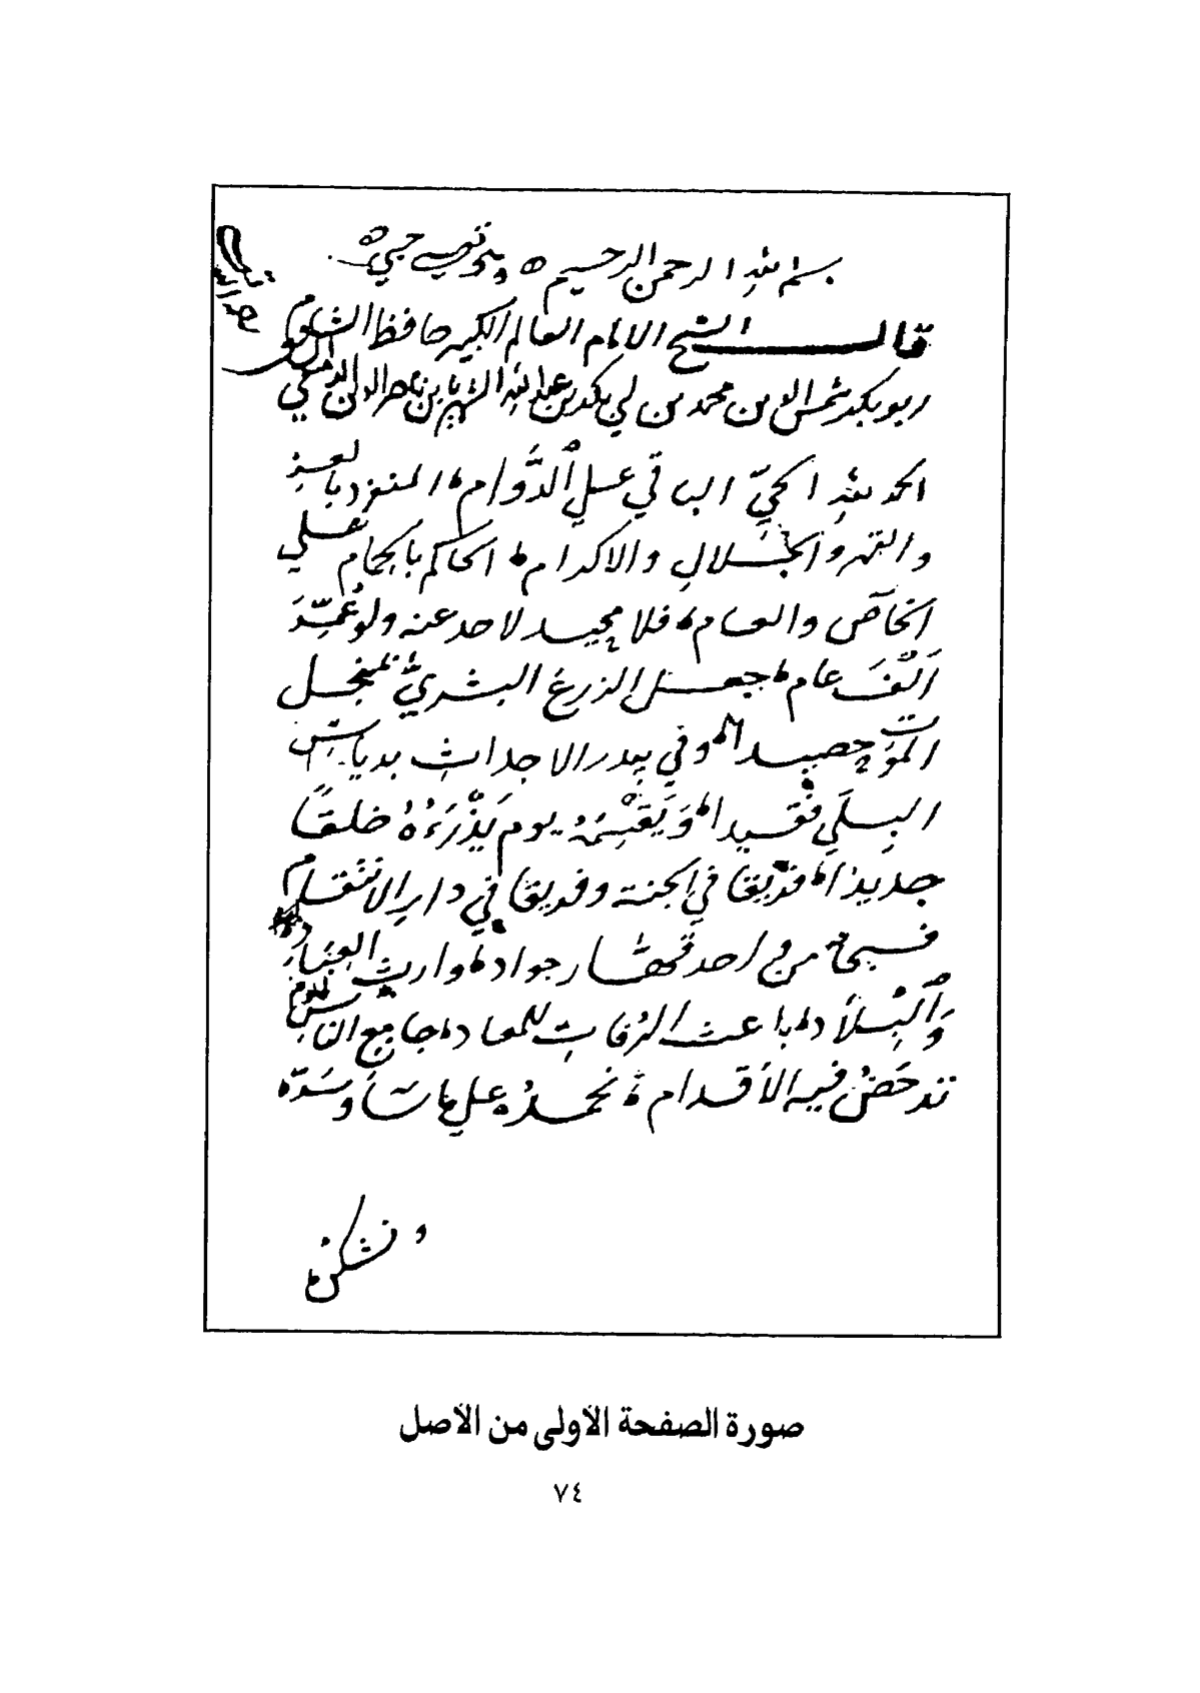 بسم الله الرحمن الرحيم ه وبه توفيقي حسبي ه
قال الشيخ الامام العالم الكبير حافظ الشام
ابو بكر شمس الدين محمد بن ابي بكر بن عبد الله الشهير بابن ناصر الدين الدمشقي
الحمد لله الحيّ الباقي على الدَّوام المنفرد بالعز
والقهر والجلال والاكرام الحاكم بالحمام على
الخاصّ والعام فلا محيد لاحد عنه ولو عُمِّرَ
اَلْفَ عام جعل الزرع البشريَّ بمنجل
الموت حصيدا وفي بيدر الاجداث بدياس
البلى فقيدا وَيُقَسِّمَهُ يوم يَذْرَءُهُ خلقًا
جديدا فريقا في الجنة وفريقا في دار الانتقام
فسبحانه من واحد قهار جواد وارث العباد
وَالْبِلاَد باعث الرفات للمعاد جامع الناس ليوم
تدحَضُ فيه الأقدام نحمده على ما شاء وسَدّه
ونشكره
صورة الصفحة الأولى من الأصل
٧٤